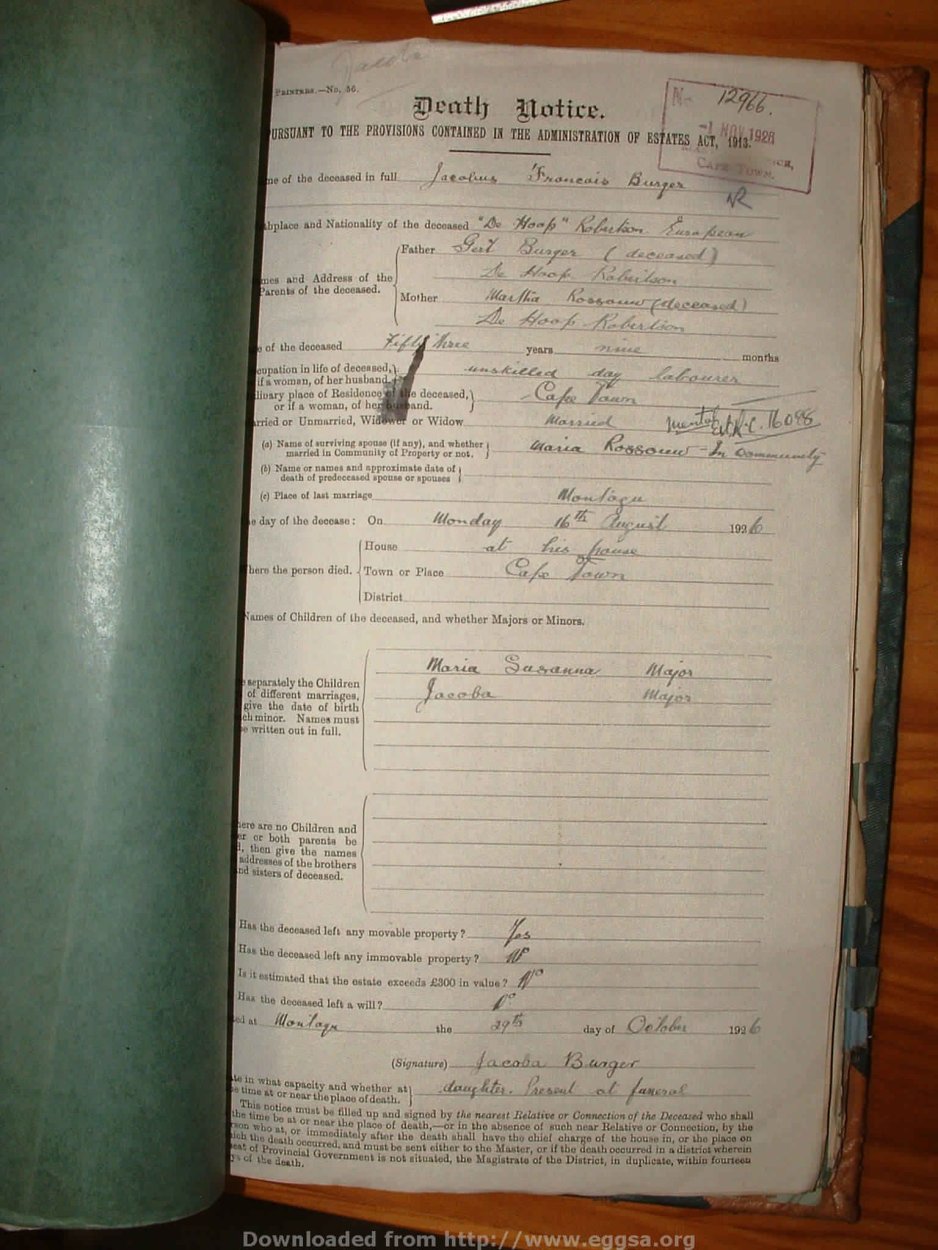 PRINTERS.—No. 56.
Death Notice.
URSUANT TO THE PROVISIONS CONTAINED IN THE ADMINISTRATION OF ESTATES ACT, 1913.
N- 12966.
-1 NOV 1926
CAPE TOWN.
me of the deceased in full Jacobus Francois Burger
thplace and Nationality of the deceased "De Hoop" Robertson European
Father Gert Burger (deceased)
De Hoop Robertson
mes and Address of the
Parents of the deceased.
Mother Martha Rossouw (deceased)
De Hoop Robertson
e of the deceased Fifty three years nine months
cupation in life of deceased,
if a woman, of her husband
unskilled day labourer
dinary place of Residence of the deceased,
or if a woman, of her husband.
Cape Town
arried or Unmarried, Widower or Widow Married
16088
(a) Name of surviving spouse (if any), and whether
married in Community of Property or not.
Maria Rossouw - In Community
(b) Name or names and approximate date of
death of predeceased spouse or spouses
(c) Place of last marriage Montagu
e day of the decease: On Monday 16th August 1926
House at his house
here the person died. Town or Place Cape Town
District
Names of Children of the deceased, and whether Majors or Minors.
Maria Susanna Major
Jacoba Major
e separately the Children
of different marriages,
give the date of birth
ch minor. Names must
e written out in full.
here are no Children and
er or both parents be
d, then give the names
addresses of the brothers
nd sisters of deceased.
Has the deceased left any movable property? Yes
Has the deceased left any immovable property? No
Is it estimated that the estate exceeds £300 in value? No
Has the deceased left a will? No
ed at Montagu the 29th day of October 1926
(Signature) Jacoba Burger
te in what capacity and whether at
e time at or near the place of death.
daughter. Present at funeral
This notice must be filled up and signed by the nearest Relative or Connection of the Deceased who shall
the time be at or near the place of death,—or in the absence of such near Relative or Connection, by the
rson who at, or immediately after the death shall have the chief charge of the house in, or the place on
ich the death occurred, and must be sent either to the Master, or if the death occurred in a district wherein
seat of Provincial Government is not situated, the Magistrate of the District, in duplicate, within fourteen
ys of the death.
Downloaded from http://www.eggsa.org